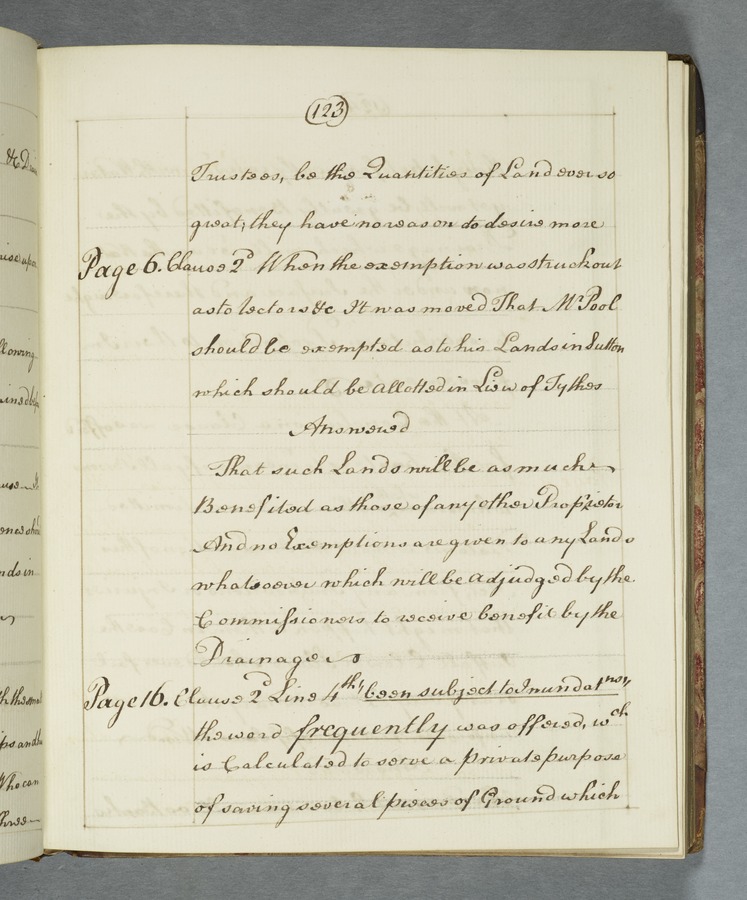 123
Trustees, be the Quantities of Land ever so
great, they have no reason to desire more
Page 6. Clause 2d When the exemption was struck out
as to lectors &c It was moved That Mr Pool
should be exempted as to his Lands in Sutton
which should be allotted in Liew of Tythes
Answered
That such Lands will be as much
Benefited as those of any other Proprietor
And no Exemptions are given to any Lands
whatsoever which will be adjudged by the
Commissioners to receive benefit by the
Drainage
Page 16. Clause 2d Line 4th, been subject to Inundatns,
the word frequently was offered, wch
is Calculated to serve a private purpose
of saving several pieces of Ground which